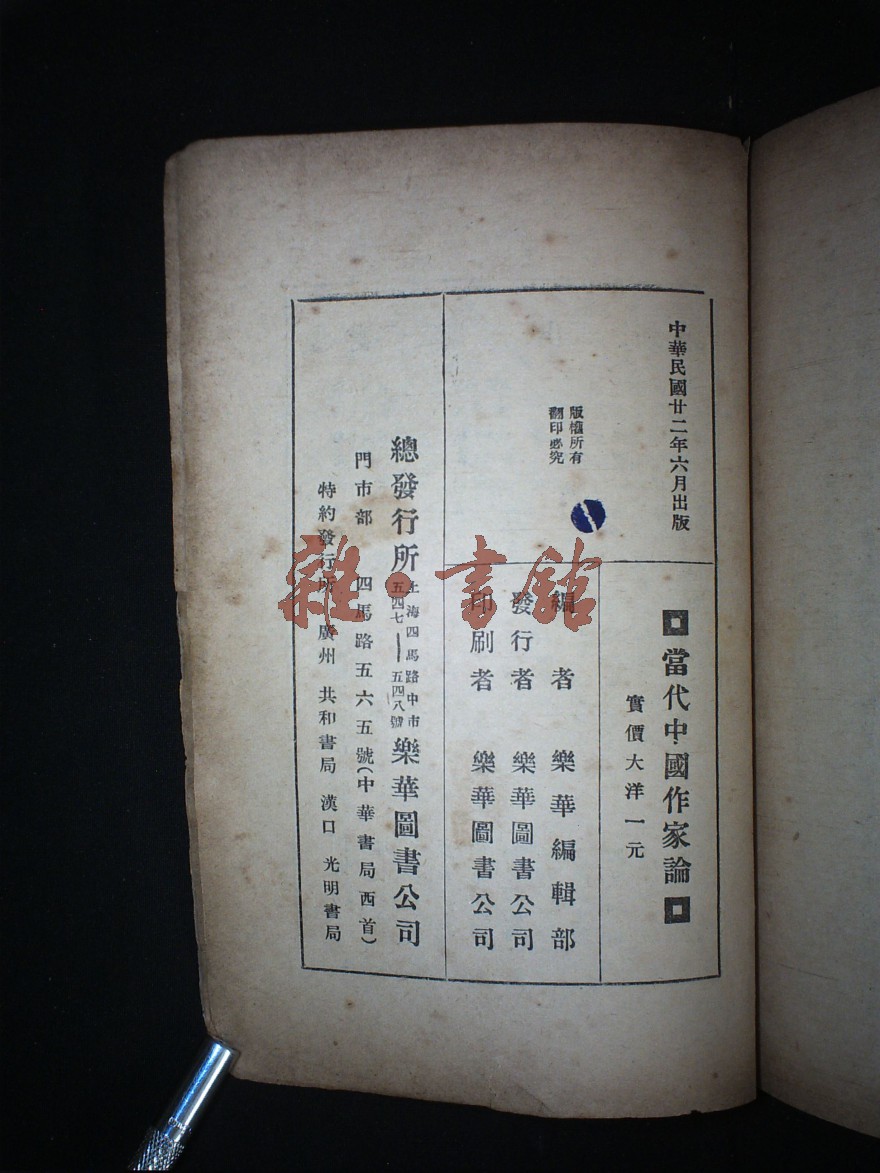 中華民國廿二年六月出版
版權所有
翻印必究
當代中國作家論
實價大洋一元
編者 樂華編輯部
發行者 樂華圖書公司
印刷者 樂華圖書公司
總發行所 上海四馬路中市五四七——五四八號 樂華圖書公司
門市部 四馬路五六五號(中華書局西首)
特約發行所 廣州 共和書局 漢口 光明書局
雜·書館